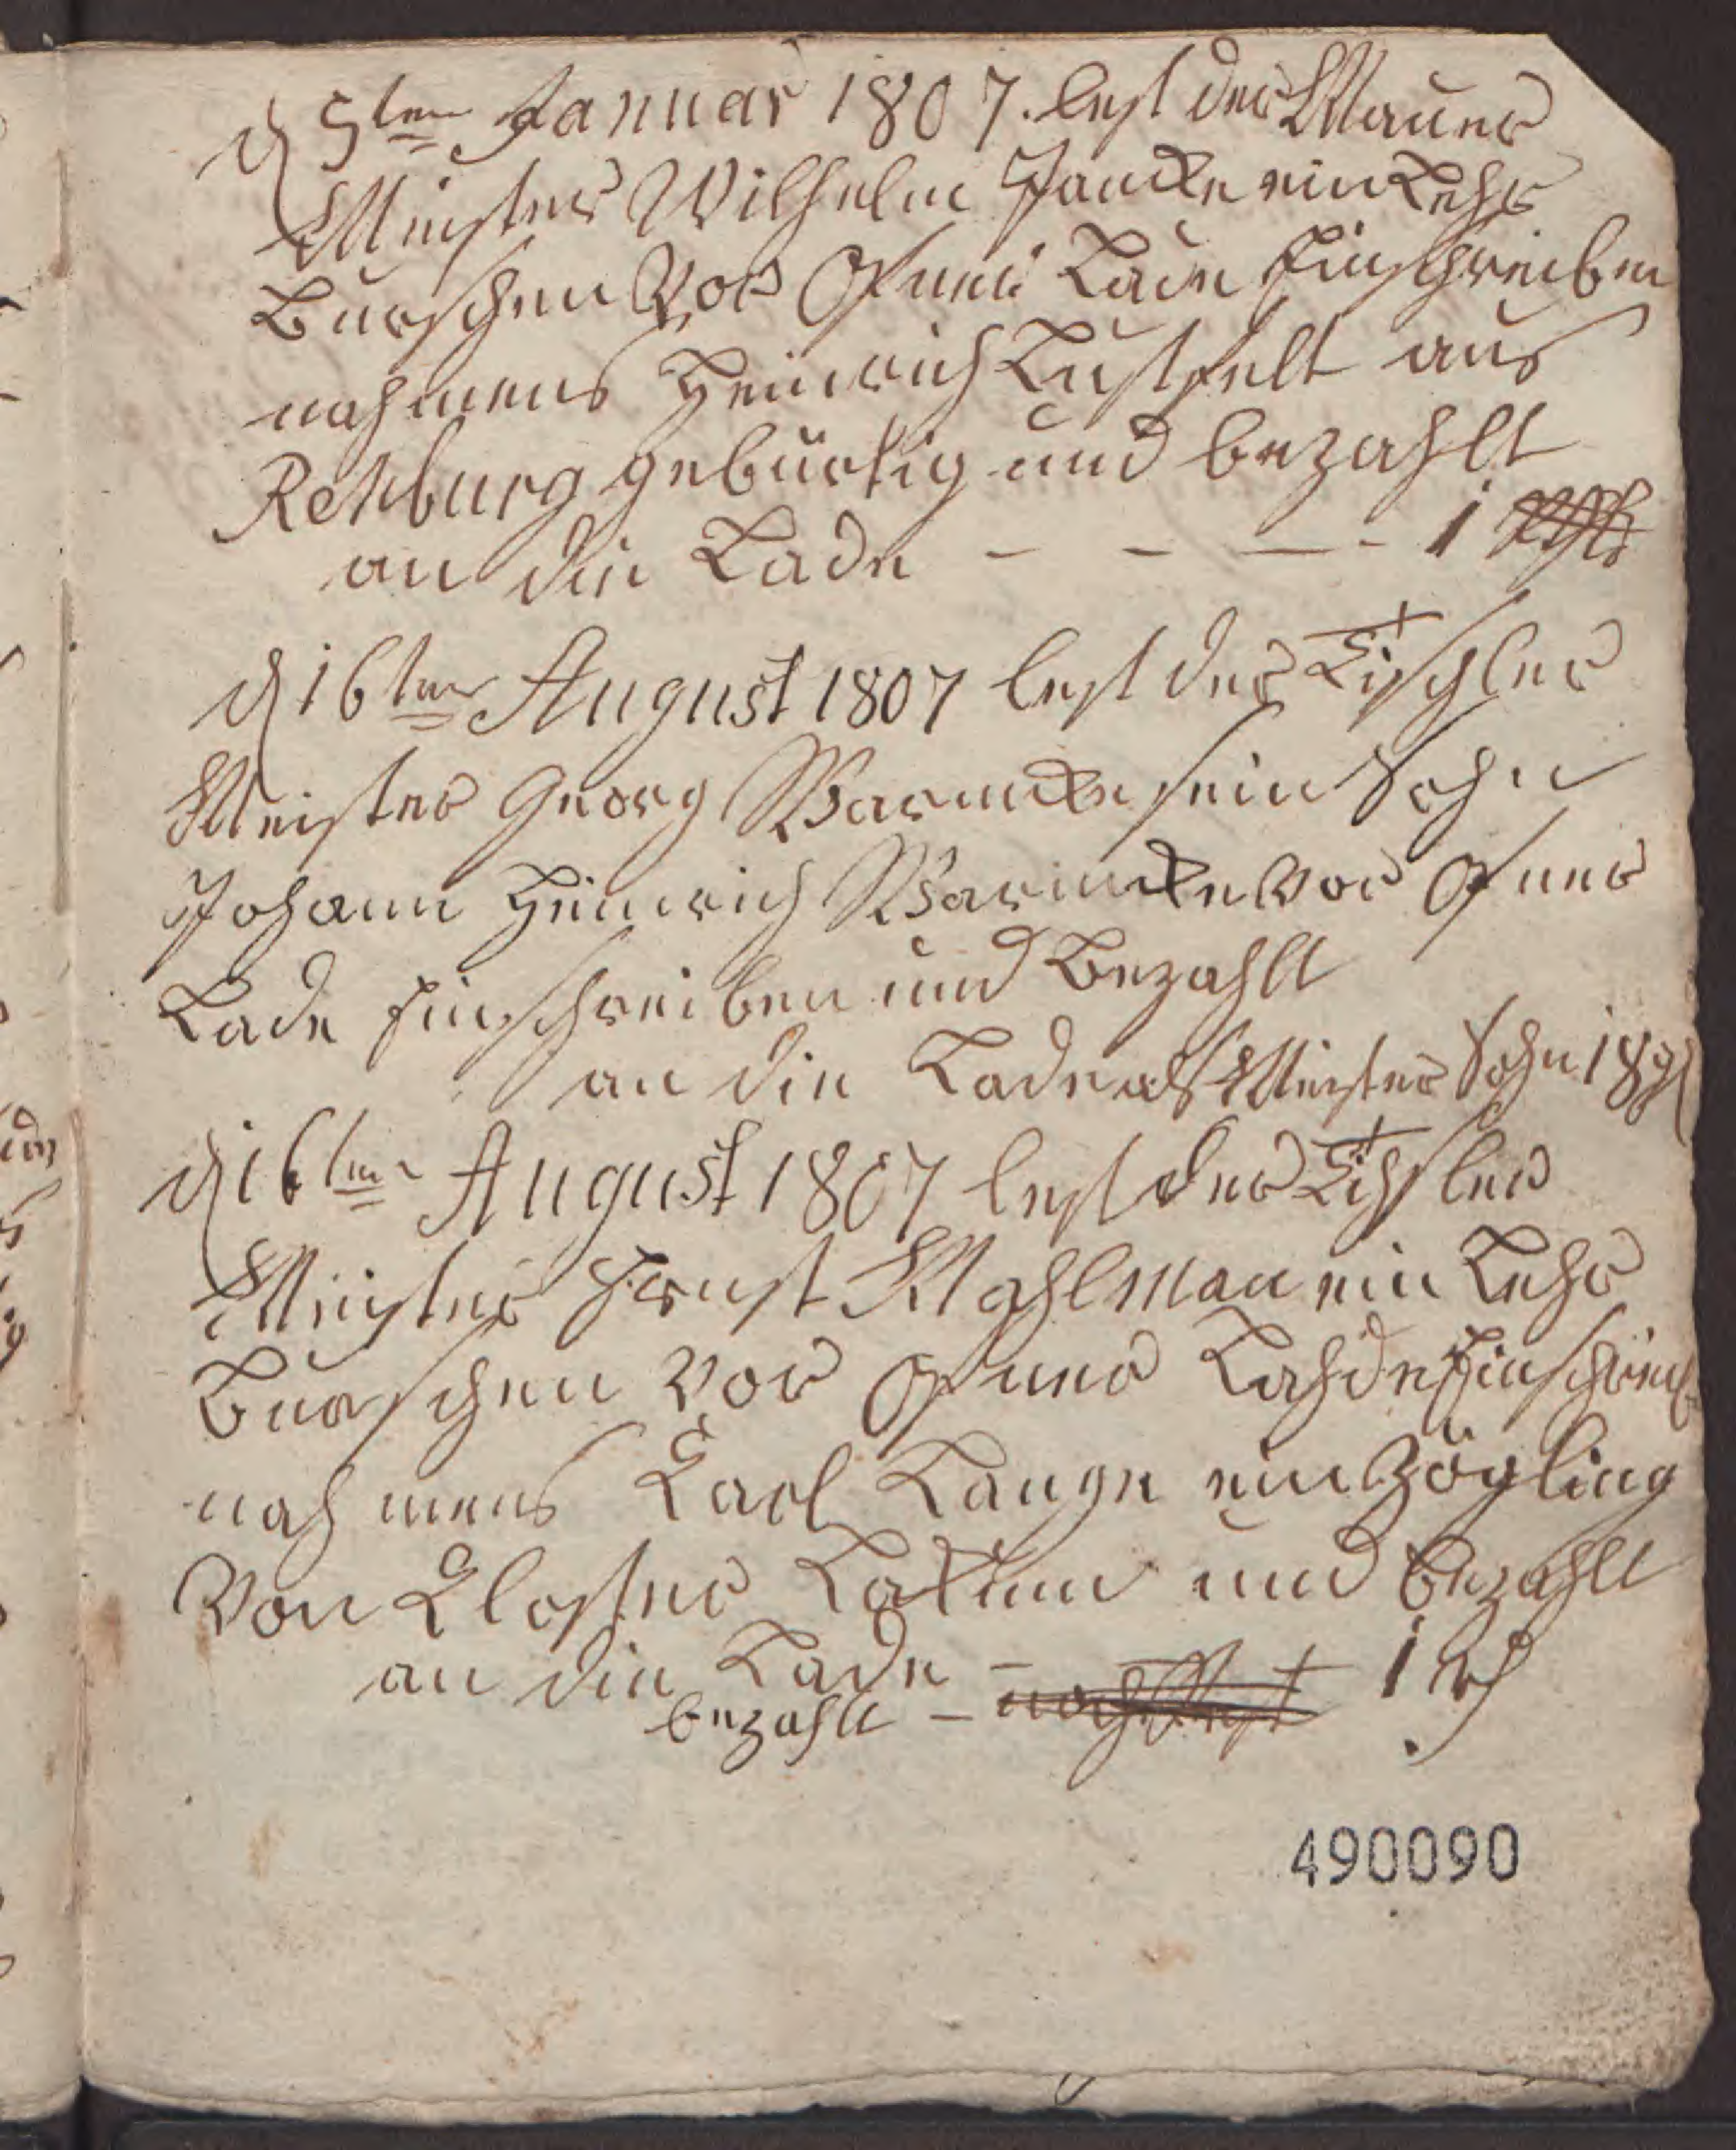 d 5ten Januar 1807. lest der Mauer
Meister Wilhelm Jancke ein Lehr
Burschen Vor Ofner Lade Einschreiben
nahmens Heinrich Lustfelt aus
Rehburg gebürtig und bezahlt
an die Lade - - - - 1
d 16ten August 1807 lest der Tischler
Meister Georg Warncke sein Sohn
Johann Heinrich Warncke vor Ofner
Lade Einschreiben und Bezahlt
an die Lade als Meister Sohn 18
d 16ten August 1807 lest der Tischler
Meister Ernst Mahlman ein Lehr
Burschen vor Ofner Lahde Einschreib
nahmens Carl Lange ein Zögling
Von Closter Lokum und Bezahlt
an die Lade - 1
bezahlt -
490090